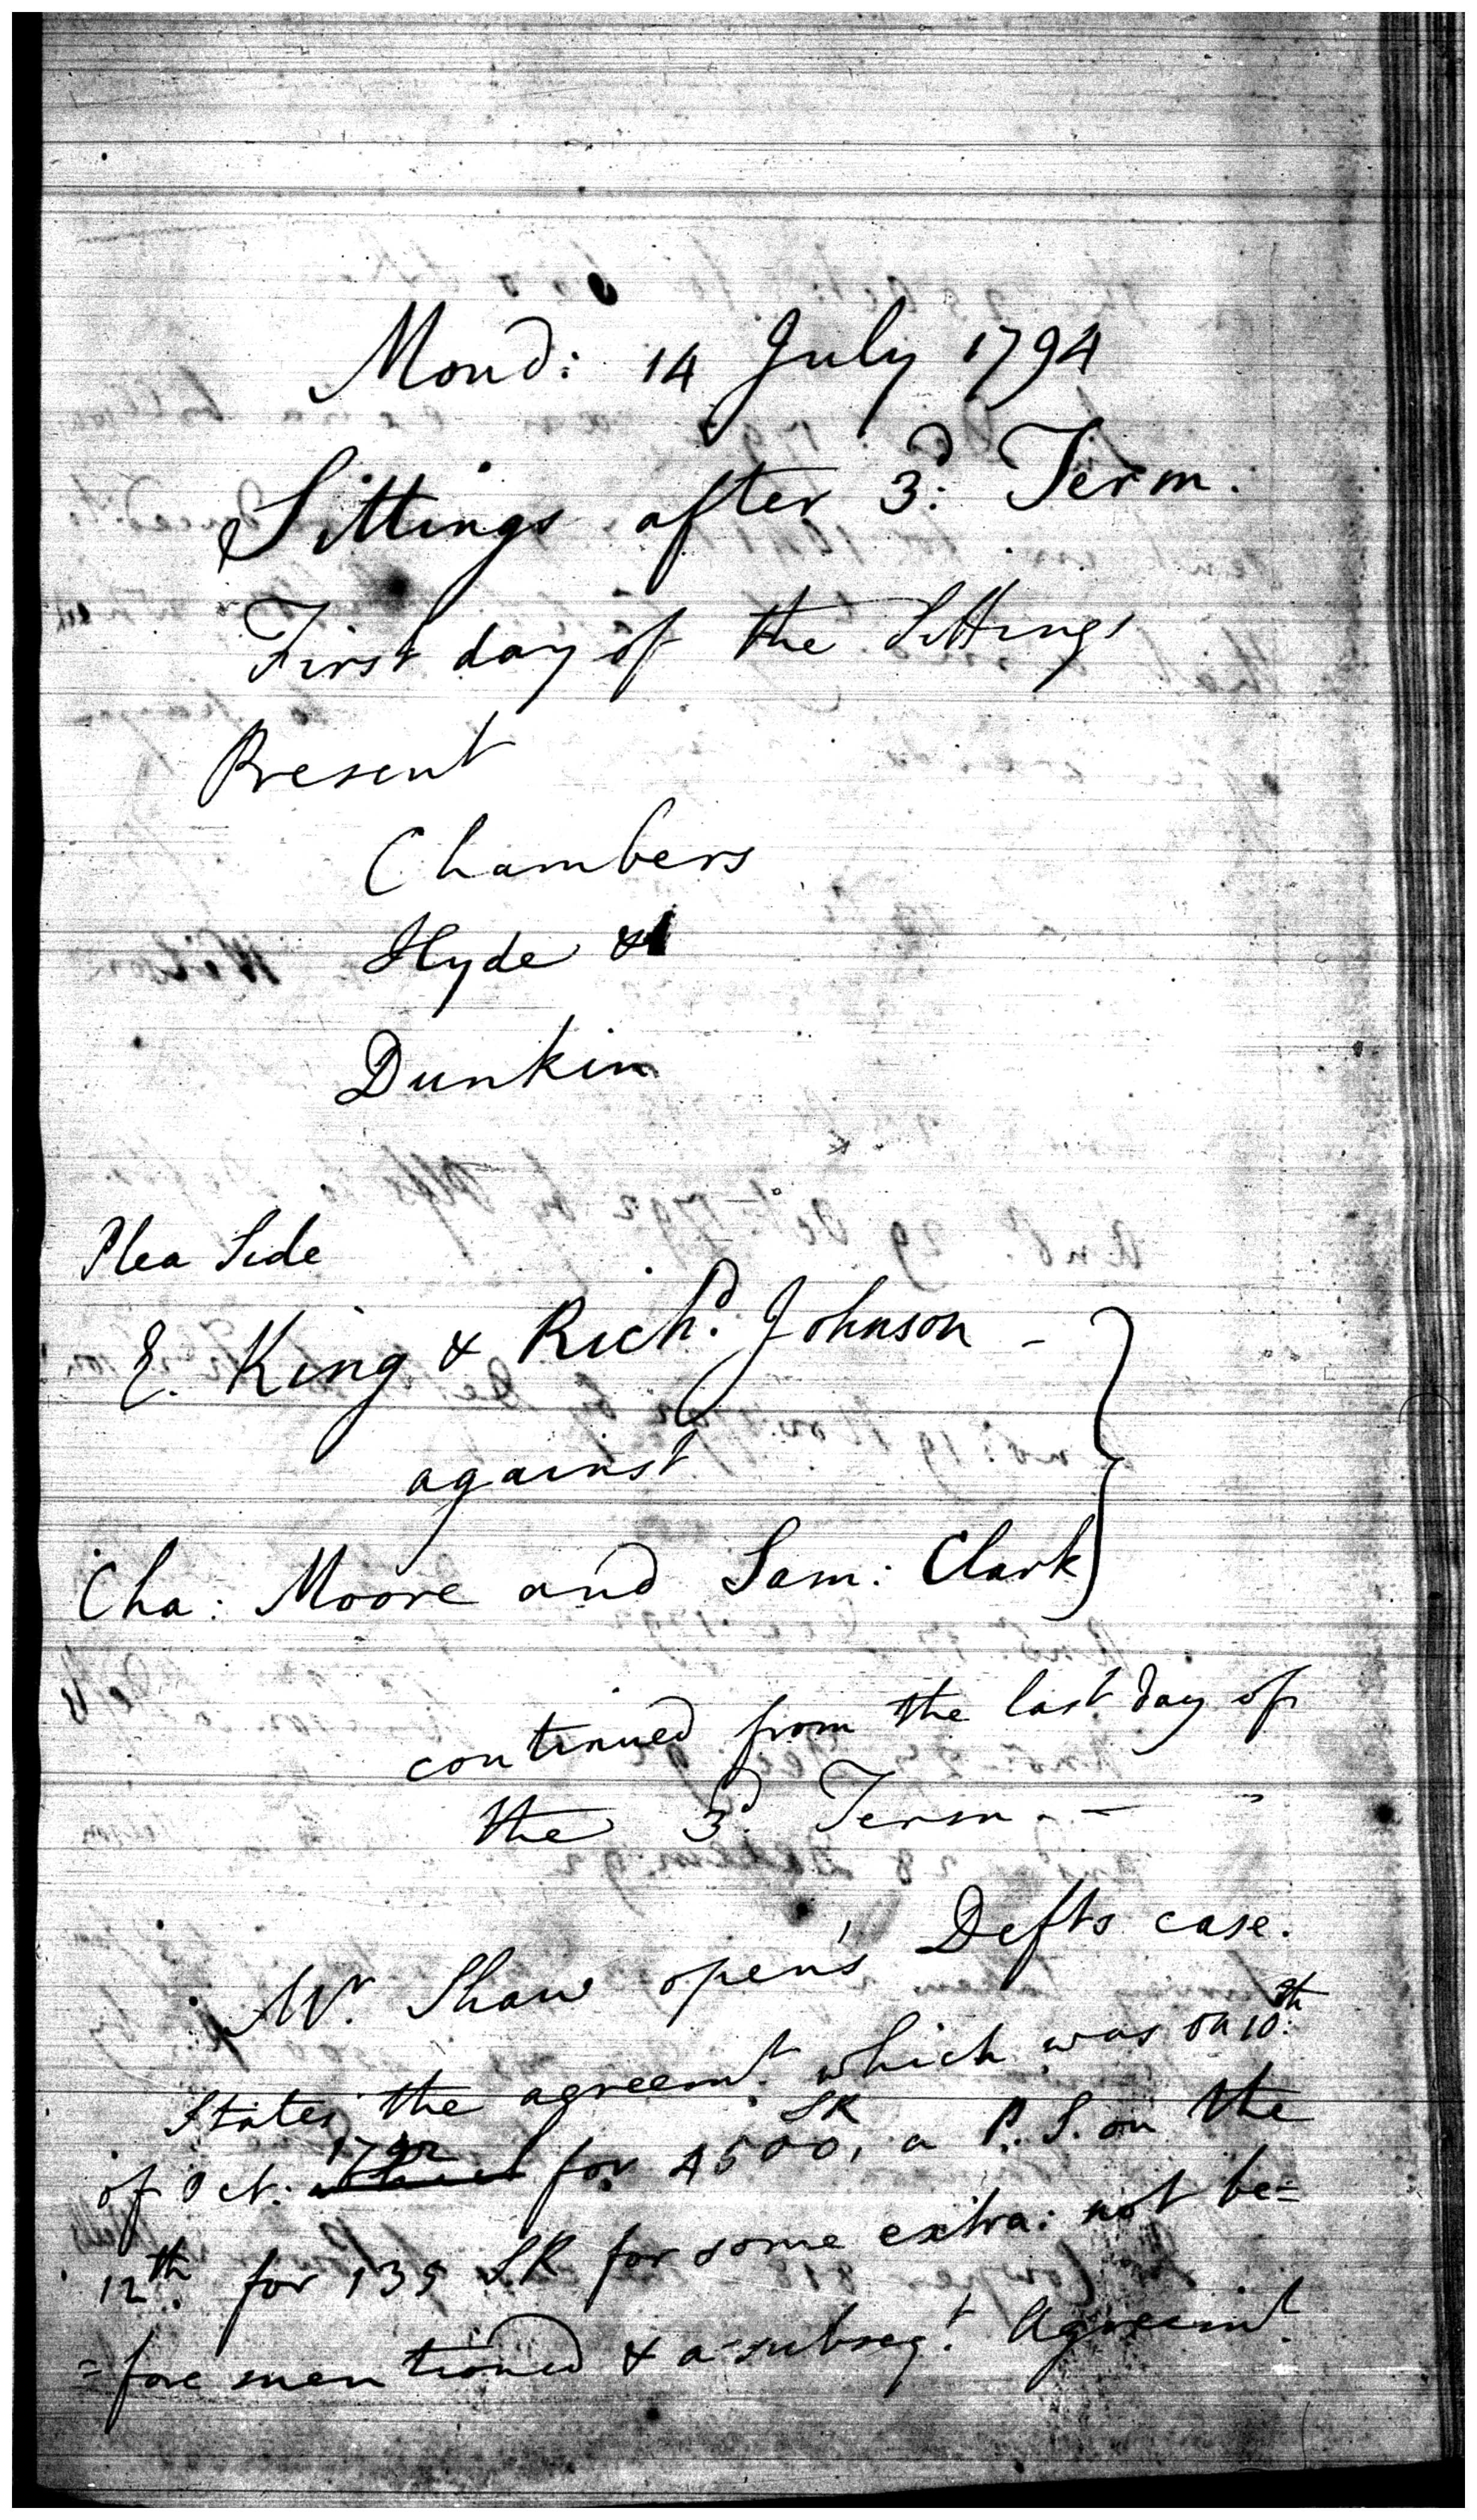 Mond: 14 July 1794
Sittings after 3.d Term.
First day of the Sittings
Present
Chambers
Hyde &
Dunkin
Plea Side
E. King & Rich.d Johnson -
against
Cha: Moore and Sam: Clark
continued from the last day of
the 3.d Term - -
Mr. Shaw open's Defts case.
States the agreemt. which was on 10.th
of Oct: 1792 for 4500, SR a P.S. on the
12.th for 135 SR for some extra: not be=
=fore mentioned & a subseqt. Agreemt.